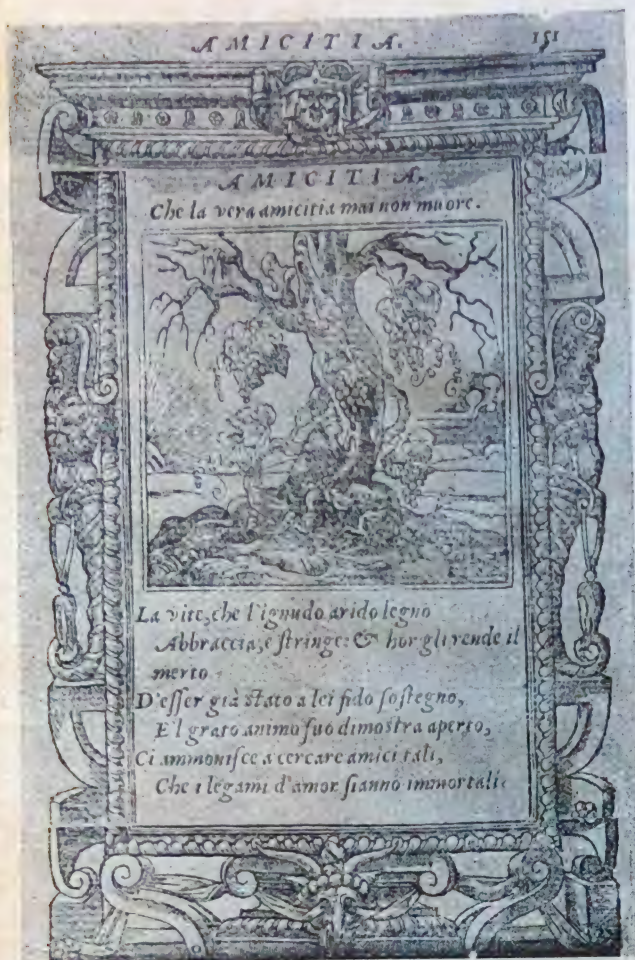 AMICITIA. 151
AMICITIA.
Che la vera amicitia mai non muore.
La vite, che l'ignudo arido legno
Abbraccia, e ſtringe: & hor gli rende il
merto
D'eſſer già ſtato a lei fido ſoſtegno,
E'l grato animo ſuo dimoſtra aperto,
Ci ammoniſce a cercare amici tali,
Che i legami d'amor ſianno immortali.